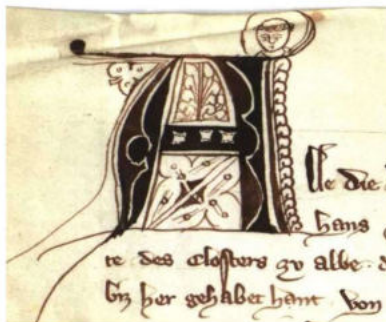 Alle die
hans
te des closters zv albe. d
biz her gehabet hant von